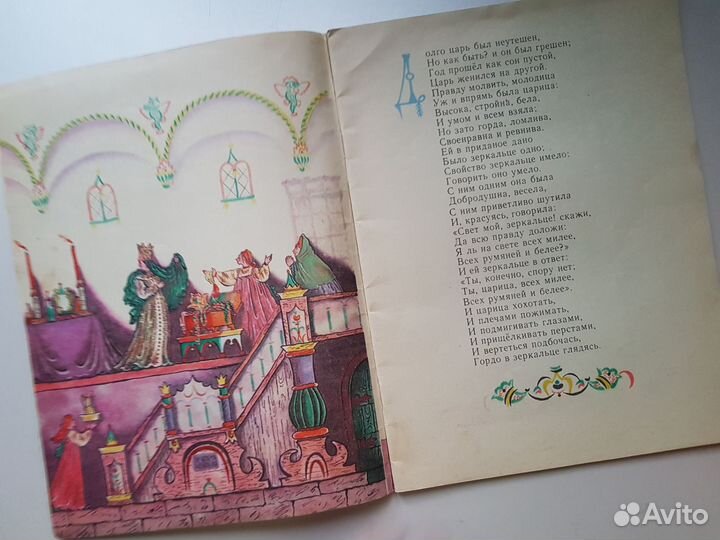 Долго царь был неутешен,
Но как быть? и он был грешен;
Год прошёл как сон пустой,
Царь женился на другой.
Правду молвить, молодица
Уж и впрямь была царица:
Высока, стройна, бела,
И умом и всем взяла:
Но зато горда, ломлива,
Своенравна и ревнива.
Ей в приданое дано
Было зеркальце одно:
Свойство зеркальце имело:
Говорить оно умело.
С ним одним она была
Добродушна, весела,
С ним приветливо шутила
И, красуясь, говорила:
«Свет мой, зеркальце! скажи,
Да всю правду доложи:
Я ль на свете всех милее,
Всех румяней и белее?»
И ей зеркальце в ответ:
«Ты, конечно, спору нет;
Ты, царица, всех милее,
Всех румяней и белее».
И царица хохотать,
И плечами пожимать,
И подмигивать глазами,
И прищёлкивать перстами,
И вертеться подбочась,
Гордо в зеркальце глядясь.
Avito